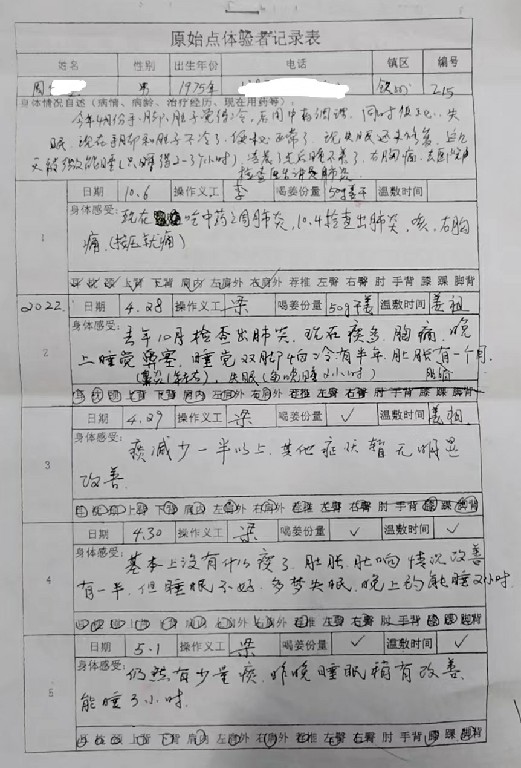 原始点体验者记录表
姓名 性别 出生年份 电话 镇区 编号
周 男 1975年 215
身体情况自述（病情、病龄、治疗经历、现在用药等）：
今年4月份手、脚、肚子觉得冷，后用中药调理，同时很上心，失
眠，现在手脚和肚子不冷了，便秘正常了，现失眠还未恢复，
天能睡(只睡得2-3个小时)，右胸痛，去医
检查医生讲是肺炎
日期 10.6 操作义工 李 喝姜份量 50g姜干 温敷时间
身体感受：现在 吃中药2周肺炎，10.4检查出肺炎，咳，右胸
1
痛，(按压就痛)
上背 下背 肩内 左肩外 右肩外 荐椎 左臀 右臀 肘 手背 膝 踝 脚背
2022. 日期 4.28 操作义工 梁 喝姜份量 50g干姜 温敷时间 姜祖
身体感受：去年10月检查出肺炎，现在痰多，胸痛，晚
2
上睡觉鼻塞，睡觉双脚 冷有半年，肚胀有一个月
失眠(每晚睡2小时)
上背 下背 肩内 左肩外 右肩外 荐椎 左臀 右臀 肘 手背 膝 踝 脚背
日期 4.29 操作义工 梁 喝姜份量 ✓ 温敷时间 姜祖
身体感受：痰减少一半以上，其他症状暂无明显
3
改善
上背 下背 肩内 左肩外 右肩外 荐椎 左臀 右臀 肘 手背 膝 踝 脚背
日期 4.30 操作义工 梁 喝姜份量 ✓ 温敷时间 ✓
身体感受：基本上没有什么痰了，肚胀、肚响情况改善
4
有一半，但睡眠不好，多梦失眠，晚上约能睡2小时.
上背 下背 肩内 左肩外 右肩外 荐椎 左臀 右臀 肘 手背 膝 踝 脚背
日期 5.1 操作义工 梁 喝姜份量 ✓ 温敷时间 ✓
身体感受：仍然有少量痰，昨晚睡眠稍有改善，
5
能睡3小时.
上背 下背 肩内 左肩外 右肩外 荐椎 左臀 右臀 肘 手背 膝 踝 脚背